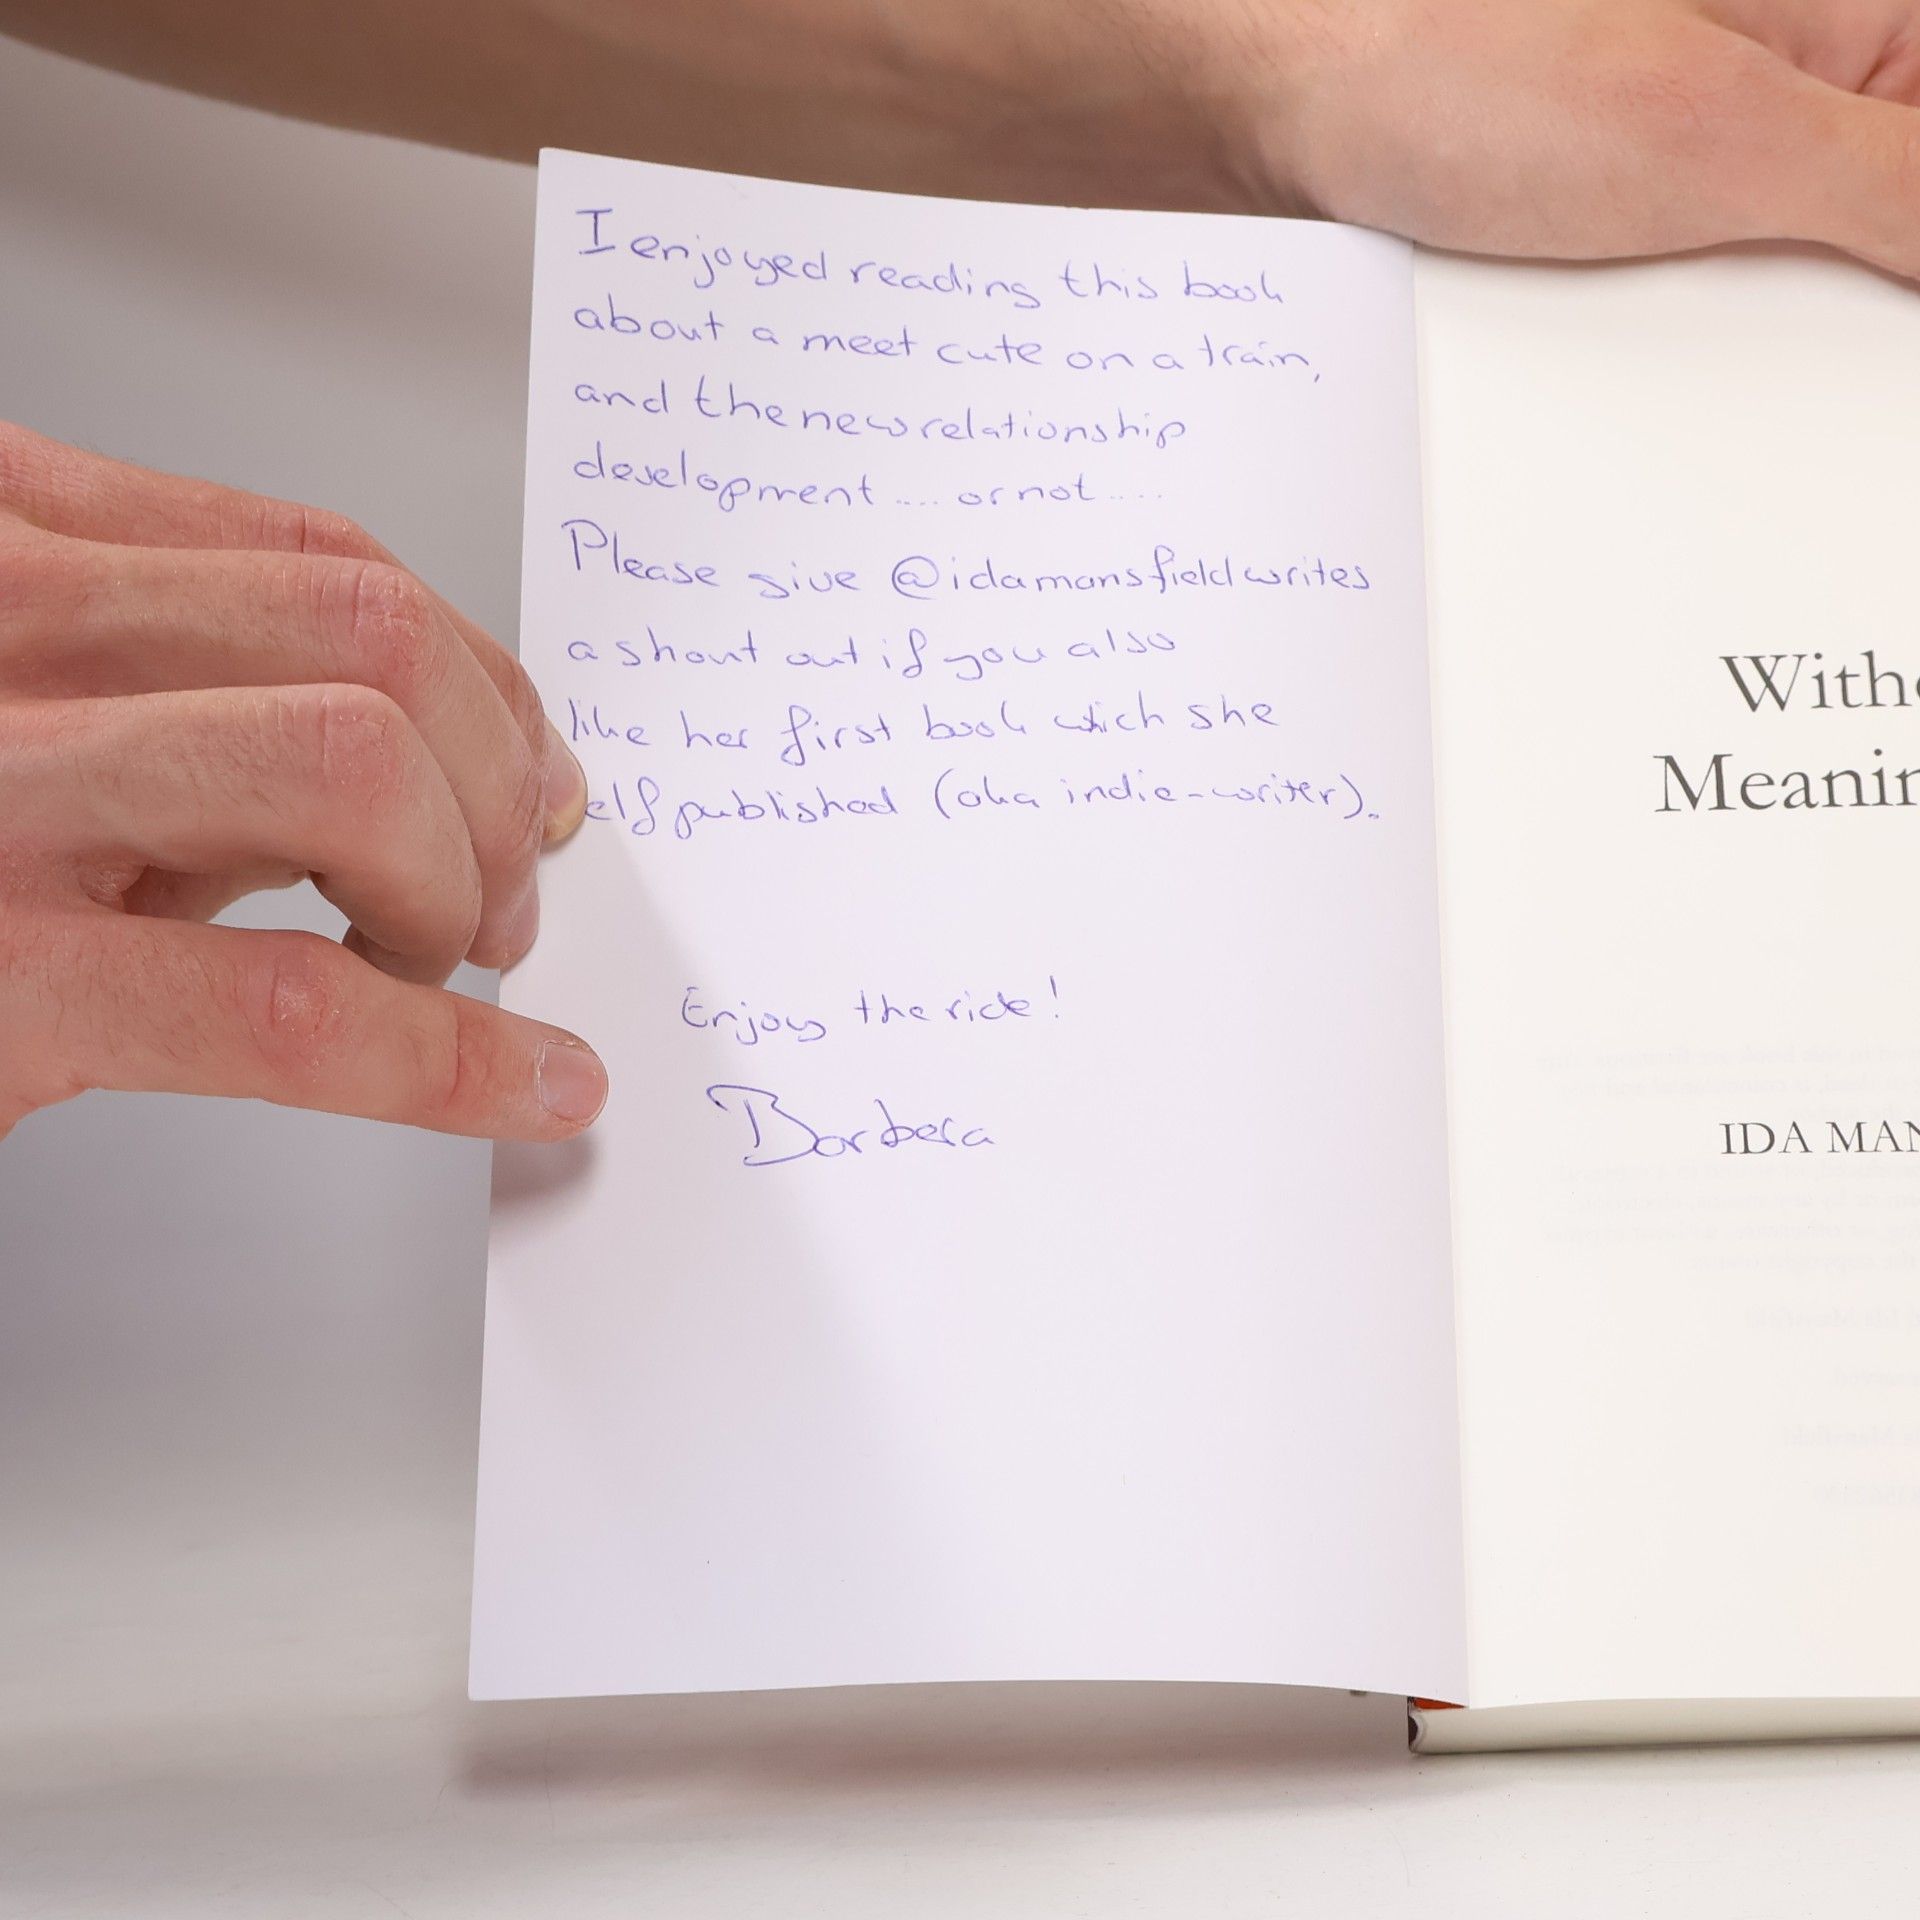 I enjoyed reading this book
about a meet cute on a train,
and the new relationship
development .... or not ....
Please give @idamansfieldwrites
a shout out if you also
like her first book which she
elf published (aka indie-writer).
Enjoy the ride!
Barbera
Witho
Meanin
IDA MAN